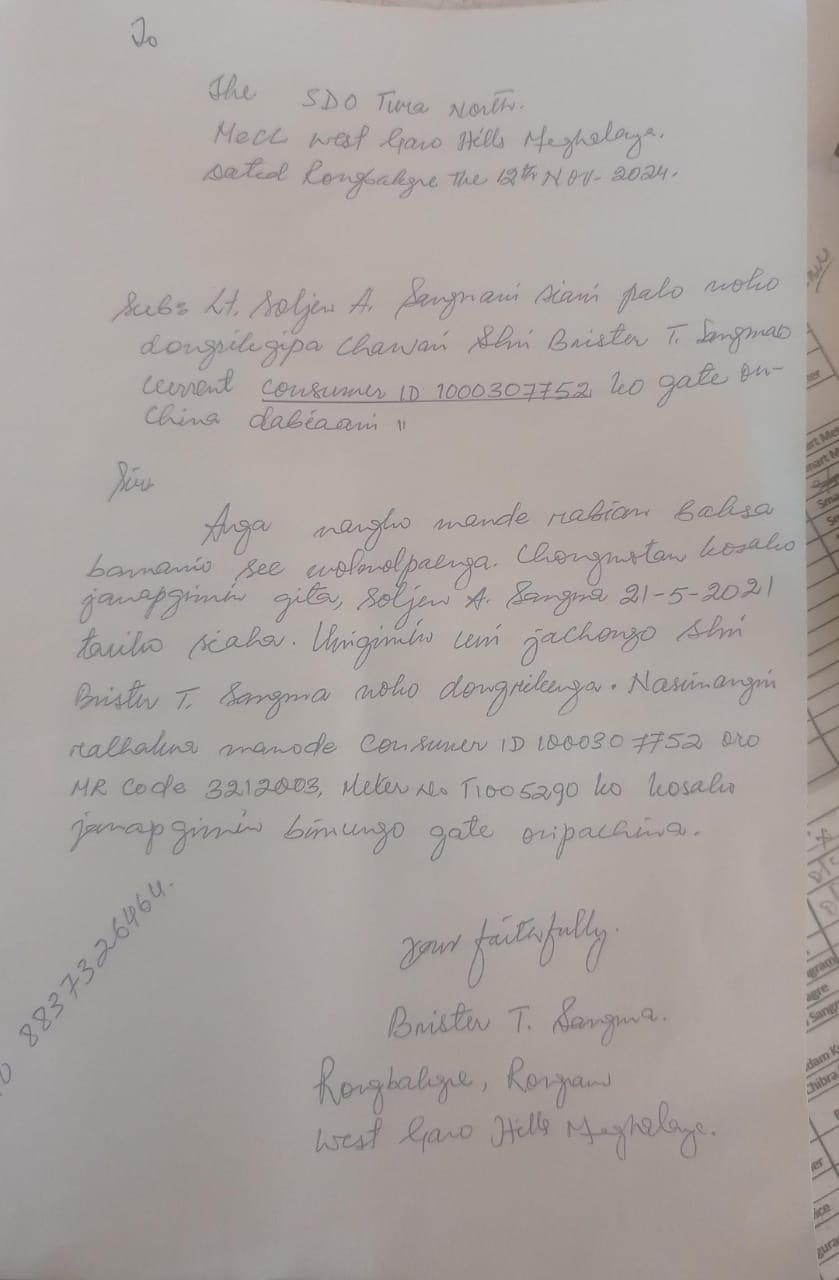 To
The SDO Tura North.
MeCL West Garo Hills Meghalaya.
Dated Rongbakgre the 12th Nov- 2024.
Sub: Lt. Soljen A. Sangmani siani palo noko
dongrikgipa chawari Shri Brister T. Sangmao
current consumer ID 1000307752 ko gate on-
china dabiaani "
Sir
Anga nangko mande rabiani baksa
bamanio see. Chongmotan kosako
janapgimin gita, Soljen A. Sangma 21-5-2021
tariko siaha. Unigimin uni jachongo Shri
Brister T. Sangma noko dongrikenga. Nasimangni
ralhakna manode Consumer ID 1000307752 aro
MR Code 3212003, Meter No T1005290 ko kosako
janapgimin bimungo gate onpachina.
Your faithfully.
Brister T. Sangma.
Rongbakgre, Rongram
West Garo Hills Meghalaya.
8837326464.